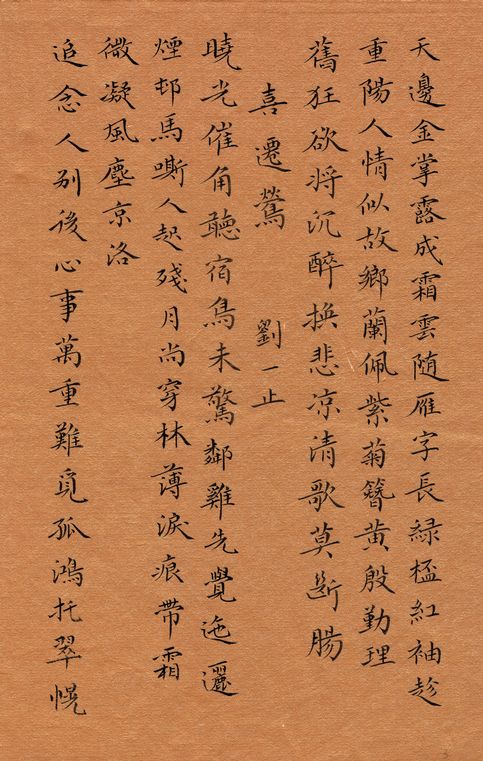 天邊金掌露成霜雲随雁字長綠桮紅袖趁
重陽人情似故鄉蘭佩紫菊簪黄殷勤理
舊狂欲将沉醉換悲凉清歌莫断腸
喜遷鶯 劉一止
曉光催角聽宿鳥未驚鄰雞先覺迤邐
煙邨馬嘶人起殘月尚穿林薄淚痕帶霜
微凝風塵京洛
追念人别後心事萬重難覓孤鴻托翠幌